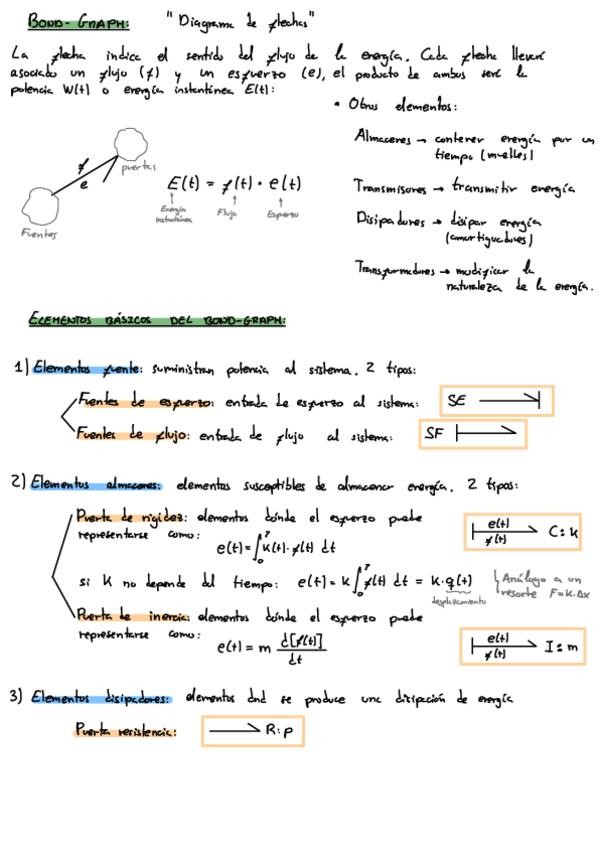 BOND-GRAPH: "Diagrama de flechas"
La flecha indica el sentido del flujo de la energía. Cada flecha llevará
asociado un flujo (f) y un esfuerzo (e), el producto de ambos será la
potencia W(t) o energía instantánea E(t):
f
e
puertas
Fuentes
E(t) = f(t) · e(t)
Energía instantánea
Flujo
Esfuerzo
• Otros elementos:
Almacenes → contener energía por un
tiempo (muelles)
Transmisores → transmitir energía
Disipadores → disipar energía
(amortiguadores)
Transformadores → modificar la
naturaleza de la energía.
ELEMENTOS BÁSICOS DEL BOND-GRAPH:
1) Elementos fuente: suministran potencia al sistema. 2 tipos:
Fuentes de esfuerzo: entrada de esfuerzo al sistema: SE
Fuentes de flujo: entrada de flujo al sistema: SF
2) Elementos almacenes: elementos susceptibles de almacenar energía. 2 tipos:
Puerta de rigidez: elementos dónde el esfuerzo puede
representarse como:
e(t) = ∫₀ᵀ k(t)·f(t) dt
e(t)
f(t)
C: k
si K no depende del tiempo: e(t) = k ∫₀ᵀ f(t) dt = k·q(t)
desplazamiento
Análogo a un
resorte F=k·Δx
Puerta de inercia: elementos dónde el esfuerzo puede
representarse como:
e(t) = m d[f(t)]/dt
e(t)
f(t)
I: m
3) Elementos disipadores: elementos dnd se produce una disipación de energía
Puerta resistencia: R: p